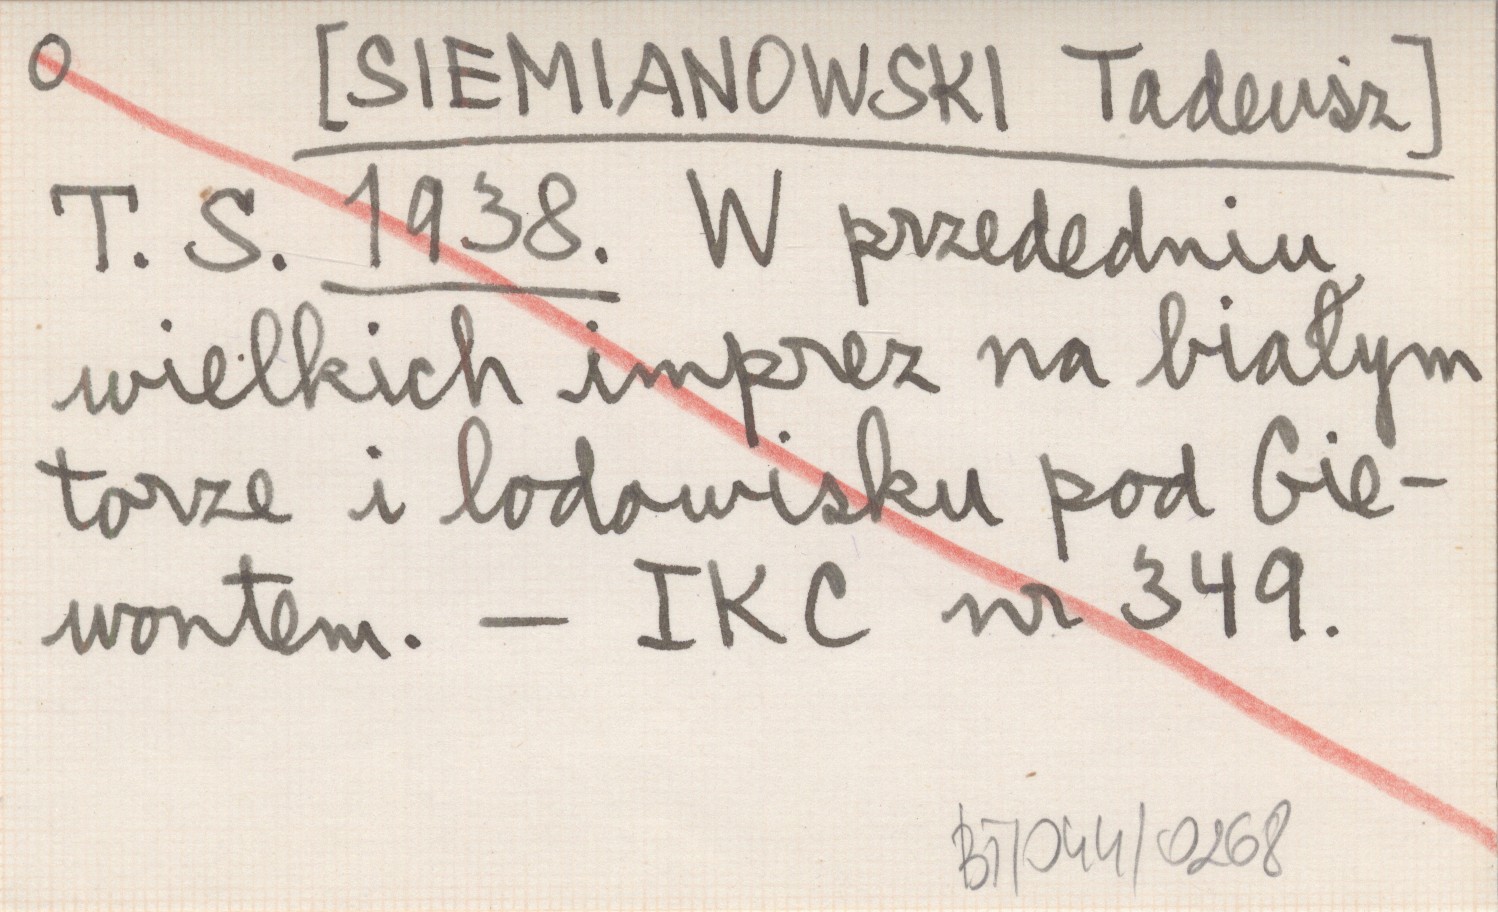 O [SIEMIANOWSKI Tadeusz]
T. S. 1938. W przededniu
wielkich imprez na białym
torze i lodowisku pod Gie-
wontem. — IKC nr 349.
BT/044/0268